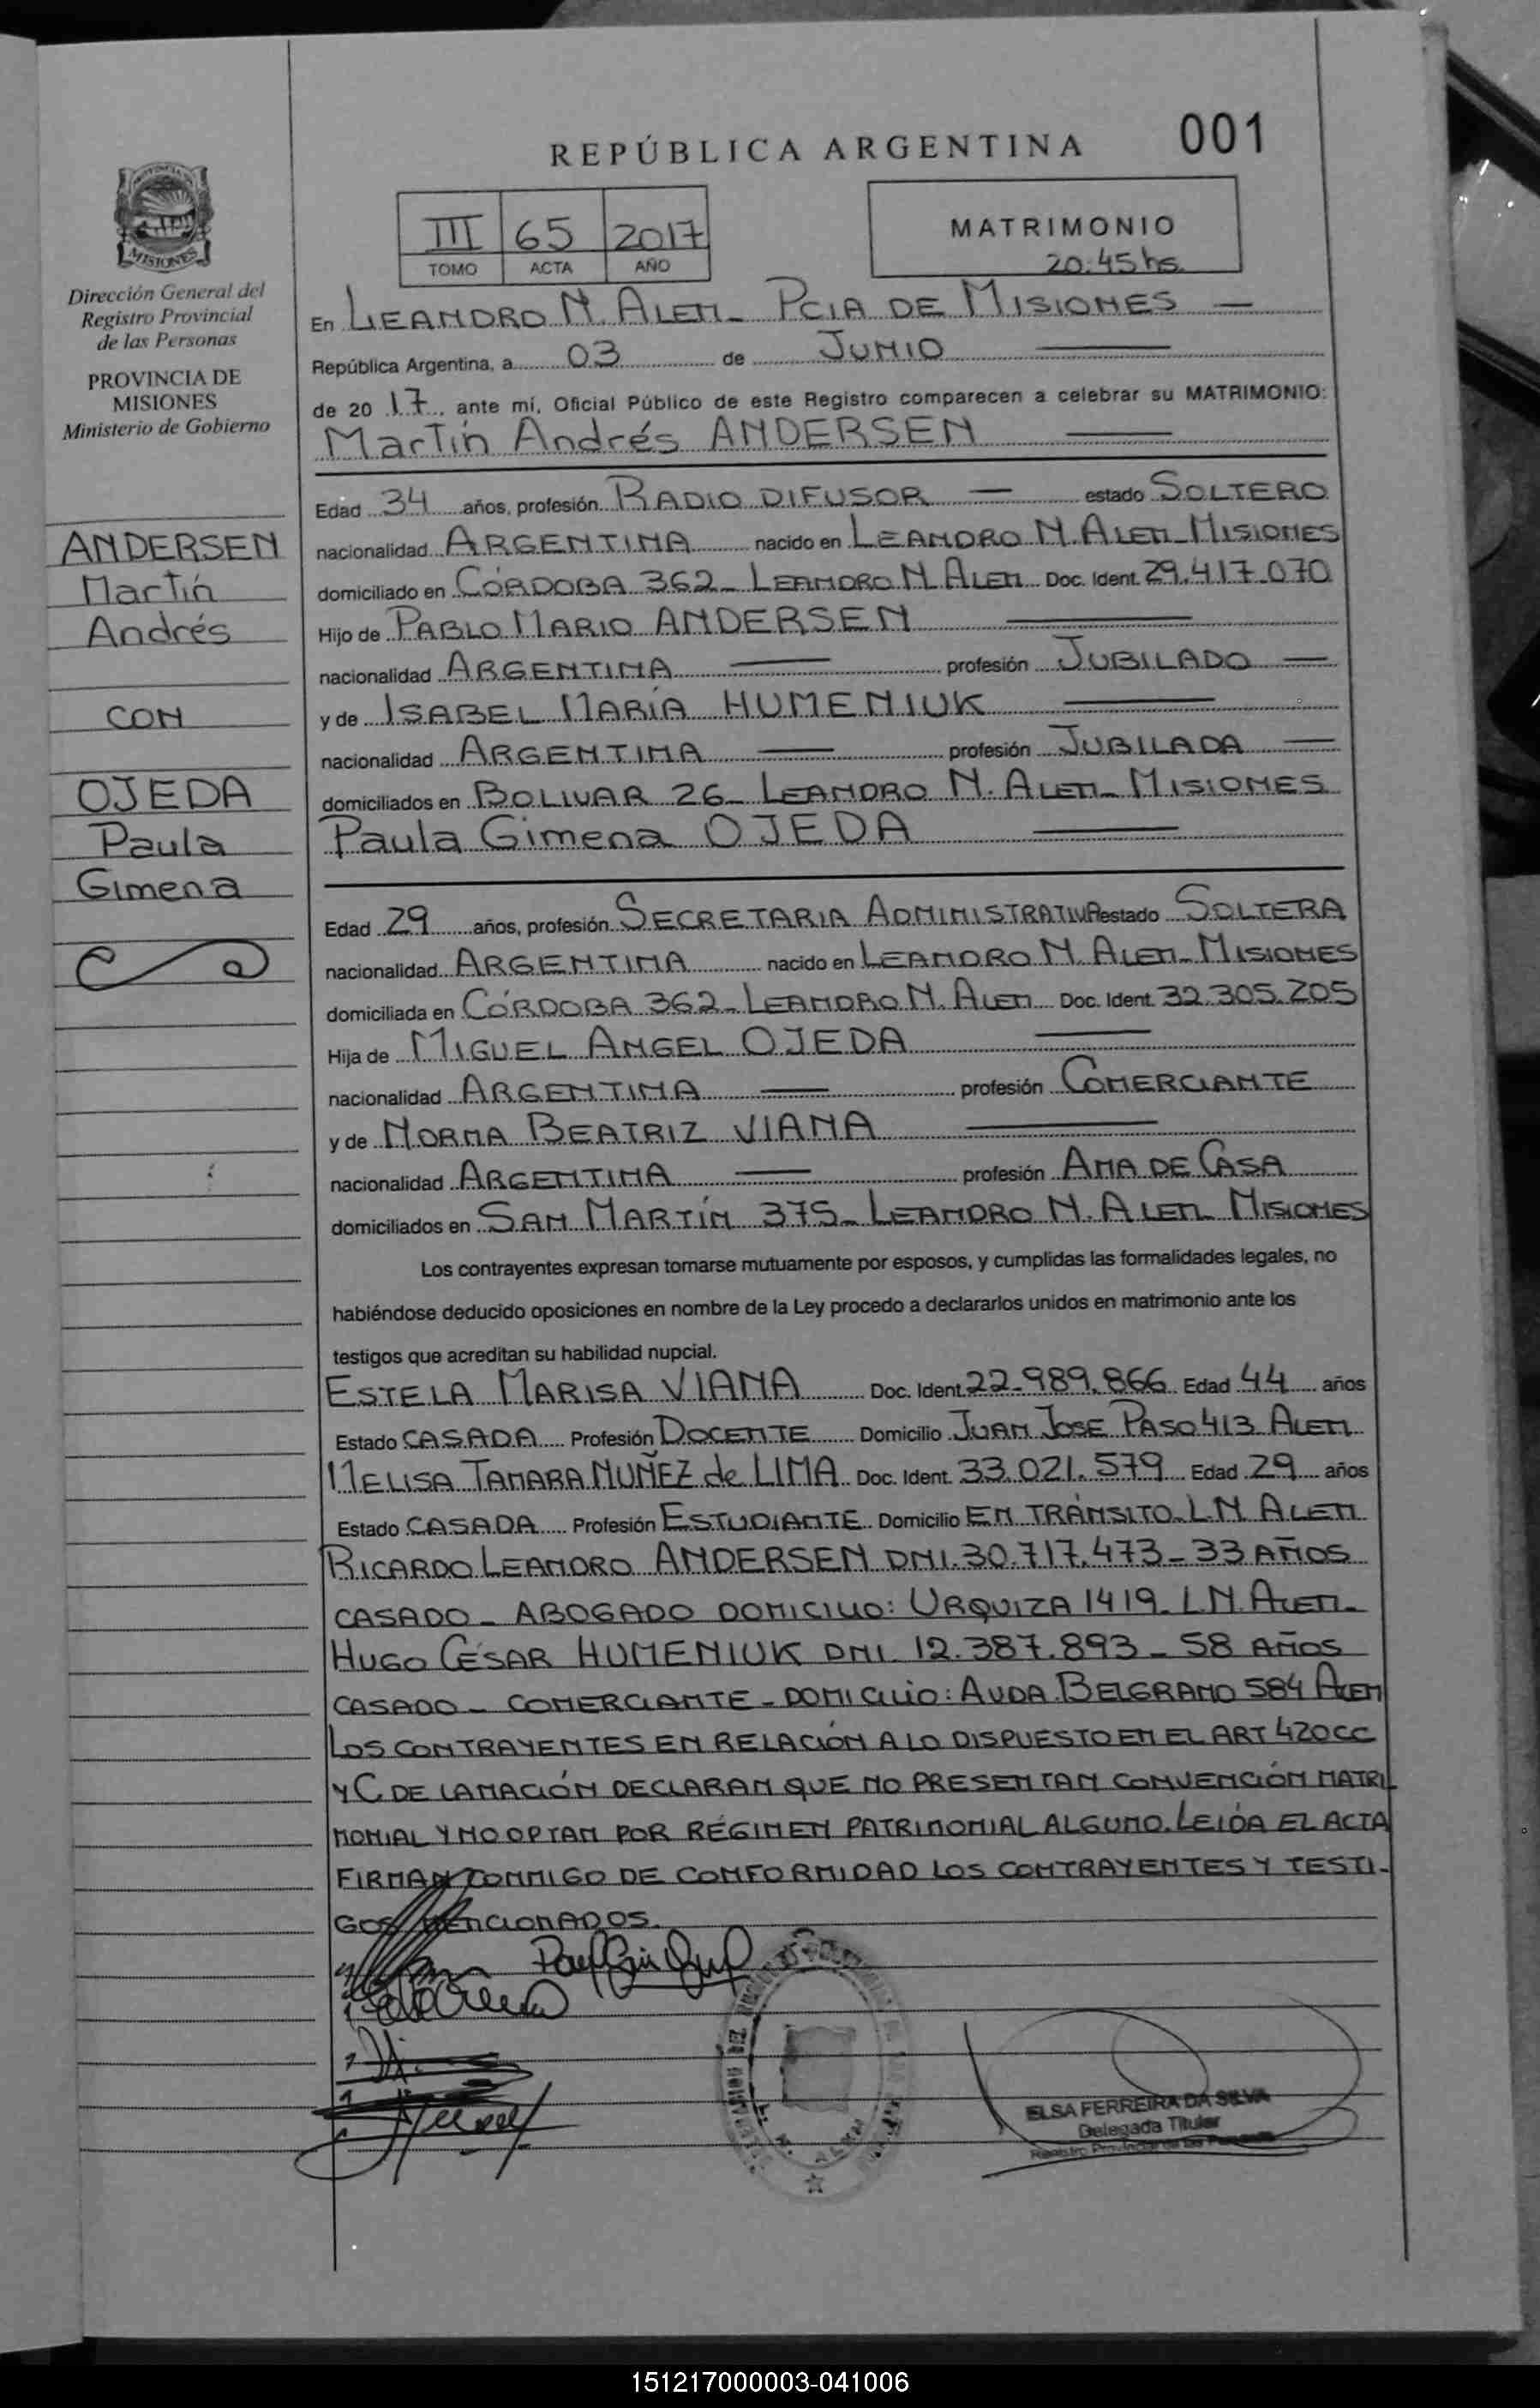 REPÚBLICA ARGENTINA 001
III 65 2017
TOMO ACTA AÑO
MATRIMONIO
20:45 hs.
MISIONES
Dirección General del
Registro Provincial
de las Personas
PROVINCIA DE
MISIONES
Ministerio de Gobierno
ANDERSEN
Martín
Andrés
CON
OJEDA
Paula
Gimena
En LEANDRO N. ALEM - PCIA DE MISIONES
República Argentina, a 03 de JUNIO
de 20 17, ante mí, Oficial Público de este Registro comparecen a celebrar su MATRIMONIO:
Martín Andrés ANDERSEN
Edad 34 años, profesión RADIO DIFUSOR estado SOLTERO
nacionalidad ARGENTINA nacido en LEANDRO N. ALEM - MISIONES
domiciliado en CÓRDOBA 362 - LEANDRO N. ALEM Doc. Ident. 29.417.070
Hijo de PABLO MARIO ANDERSEN
nacionalidad ARGENTINA profesión JUBILADO
y de ISABEL MARÍA HUMENIUK
nacionalidad ARGENTINA profesión JUBILADA
domiciliados en BOLIVAR 26 - LEANDRO N. ALEM - MISIONES
Paula Gimena OJEDA
Edad 29 años, profesión SECRETARIA ADMINISTRATIVA estado SOLTERA
nacionalidad ARGENTINA nacido en LEANDRO N. ALEM - MISIONES
domiciliada en CÓRDOBA 362 - LEANDRO N. ALEM Doc. Ident. 32.305.205
Hija de MIGUEL ANGEL OJEDA
nacionalidad ARGENTINA profesión COMERCIANTE
y de NORMA BEATRIZ VIANA
nacionalidad ARGENTINA profesión AMA DE CASA
domiciliados en SAN MARTÍN 375 - LEANDRO N. ALEM MISIONES
Los contrayentes expresan tomarse mutuamente por esposos, y cumplidas las formalidades legales, no
habiéndose deducido oposiciones en nombre de la Ley procedo a declararlos unidos en matrimonio ante los
testigos que acreditan su habilidad nupcial.
ESTELA MARISA VIANA Doc. Ident. 22.989.866 Edad 44 años
Estado CASADA Profesión DOCENTE Domicilio JUAN JOSE PASO 413 ALEM
MELISA TAMARA NUÑEZ de LIMA Doc. Ident. 33.021.579 Edad 29 años
Estado CASADA Profesión ESTUDIANTE Domicilio EN TRÁNSITO L.N ALEM
RICARDO LEANDRO ANDERSEN DNI. 30.717.473 - 33 AÑOS
CASADO - ABOGADO DOMICILIO: URQUIZA 1419 - L.N. ALEM -
HUGO CÉSAR HUMENIUK DNI. 12.387.893 - 58 AÑOS
CASADO - COMERCIANTE - DOMICILIO: AVDA. BELGRANO 584 ALEM
LOS CONTRAYENTES EN RELACIÓN A LO DISPUESTO EN EL ART 420 CC
Y C DE LA NACIÓN DECLARAN QUE NO PRESENTAN CONVENCIÓN MATRI
MONIAL Y NO OPTAN POR RÉGIMEN PATRIMONIAL ALGUNO. LEIDA EL ACTA
FIRMAN CONMIGO DE CONFORMIDAD LOS CONTRAYENTES Y TESTI-
GOS MENCIONADOS.
ELSA FERREIRA DA SILVA
Delegada Titular
Registro Provincial de las Personas
151217000003-041006